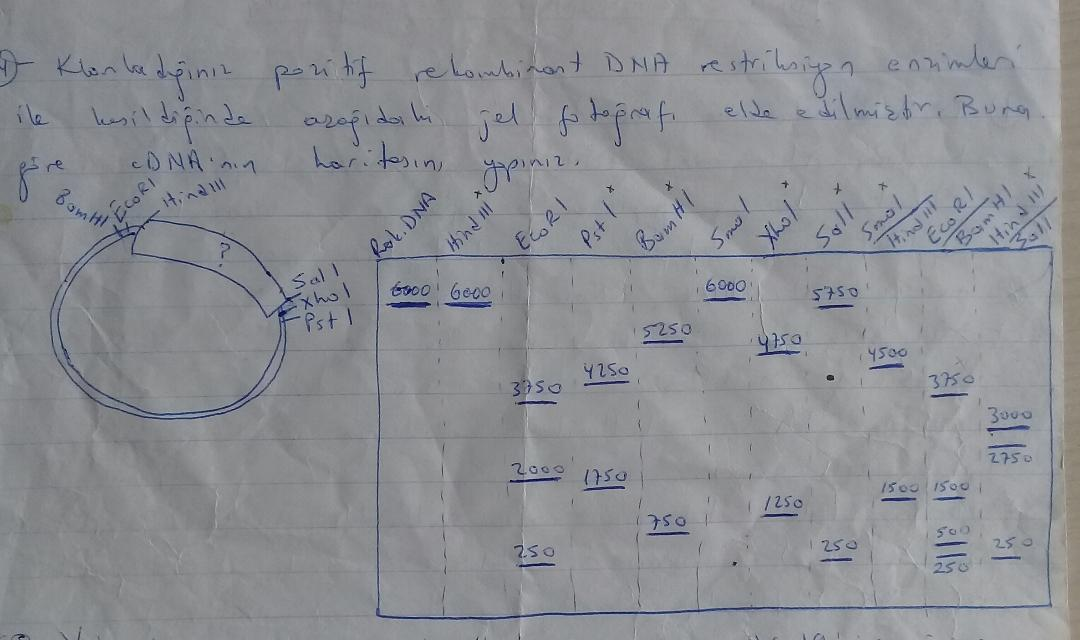 4)- Klonladığınız pozitif rekombinant DNA restriksiyon enzimleri
ile kesildiğinde aşağıdaki jel fotoğrafı elde edilmiştir. Buna
göre cDNA'nın haritasını yapınız.
BamHI EcoRI HindIII
?
Sal I
Xho I
Pst I
Rek.DNA HindIII EcoRI Pst I BamHI Sma I Xho I Sal I Sma I/HindIII EcoRI/BamHI HindIII/Sal I
+ + + + + + +
6000 6000 6000 5750
5250 4750 4500
3750 4250 3750
3000
2750
2000 1750 1500 1500
750 1250
250 250 500 250
250